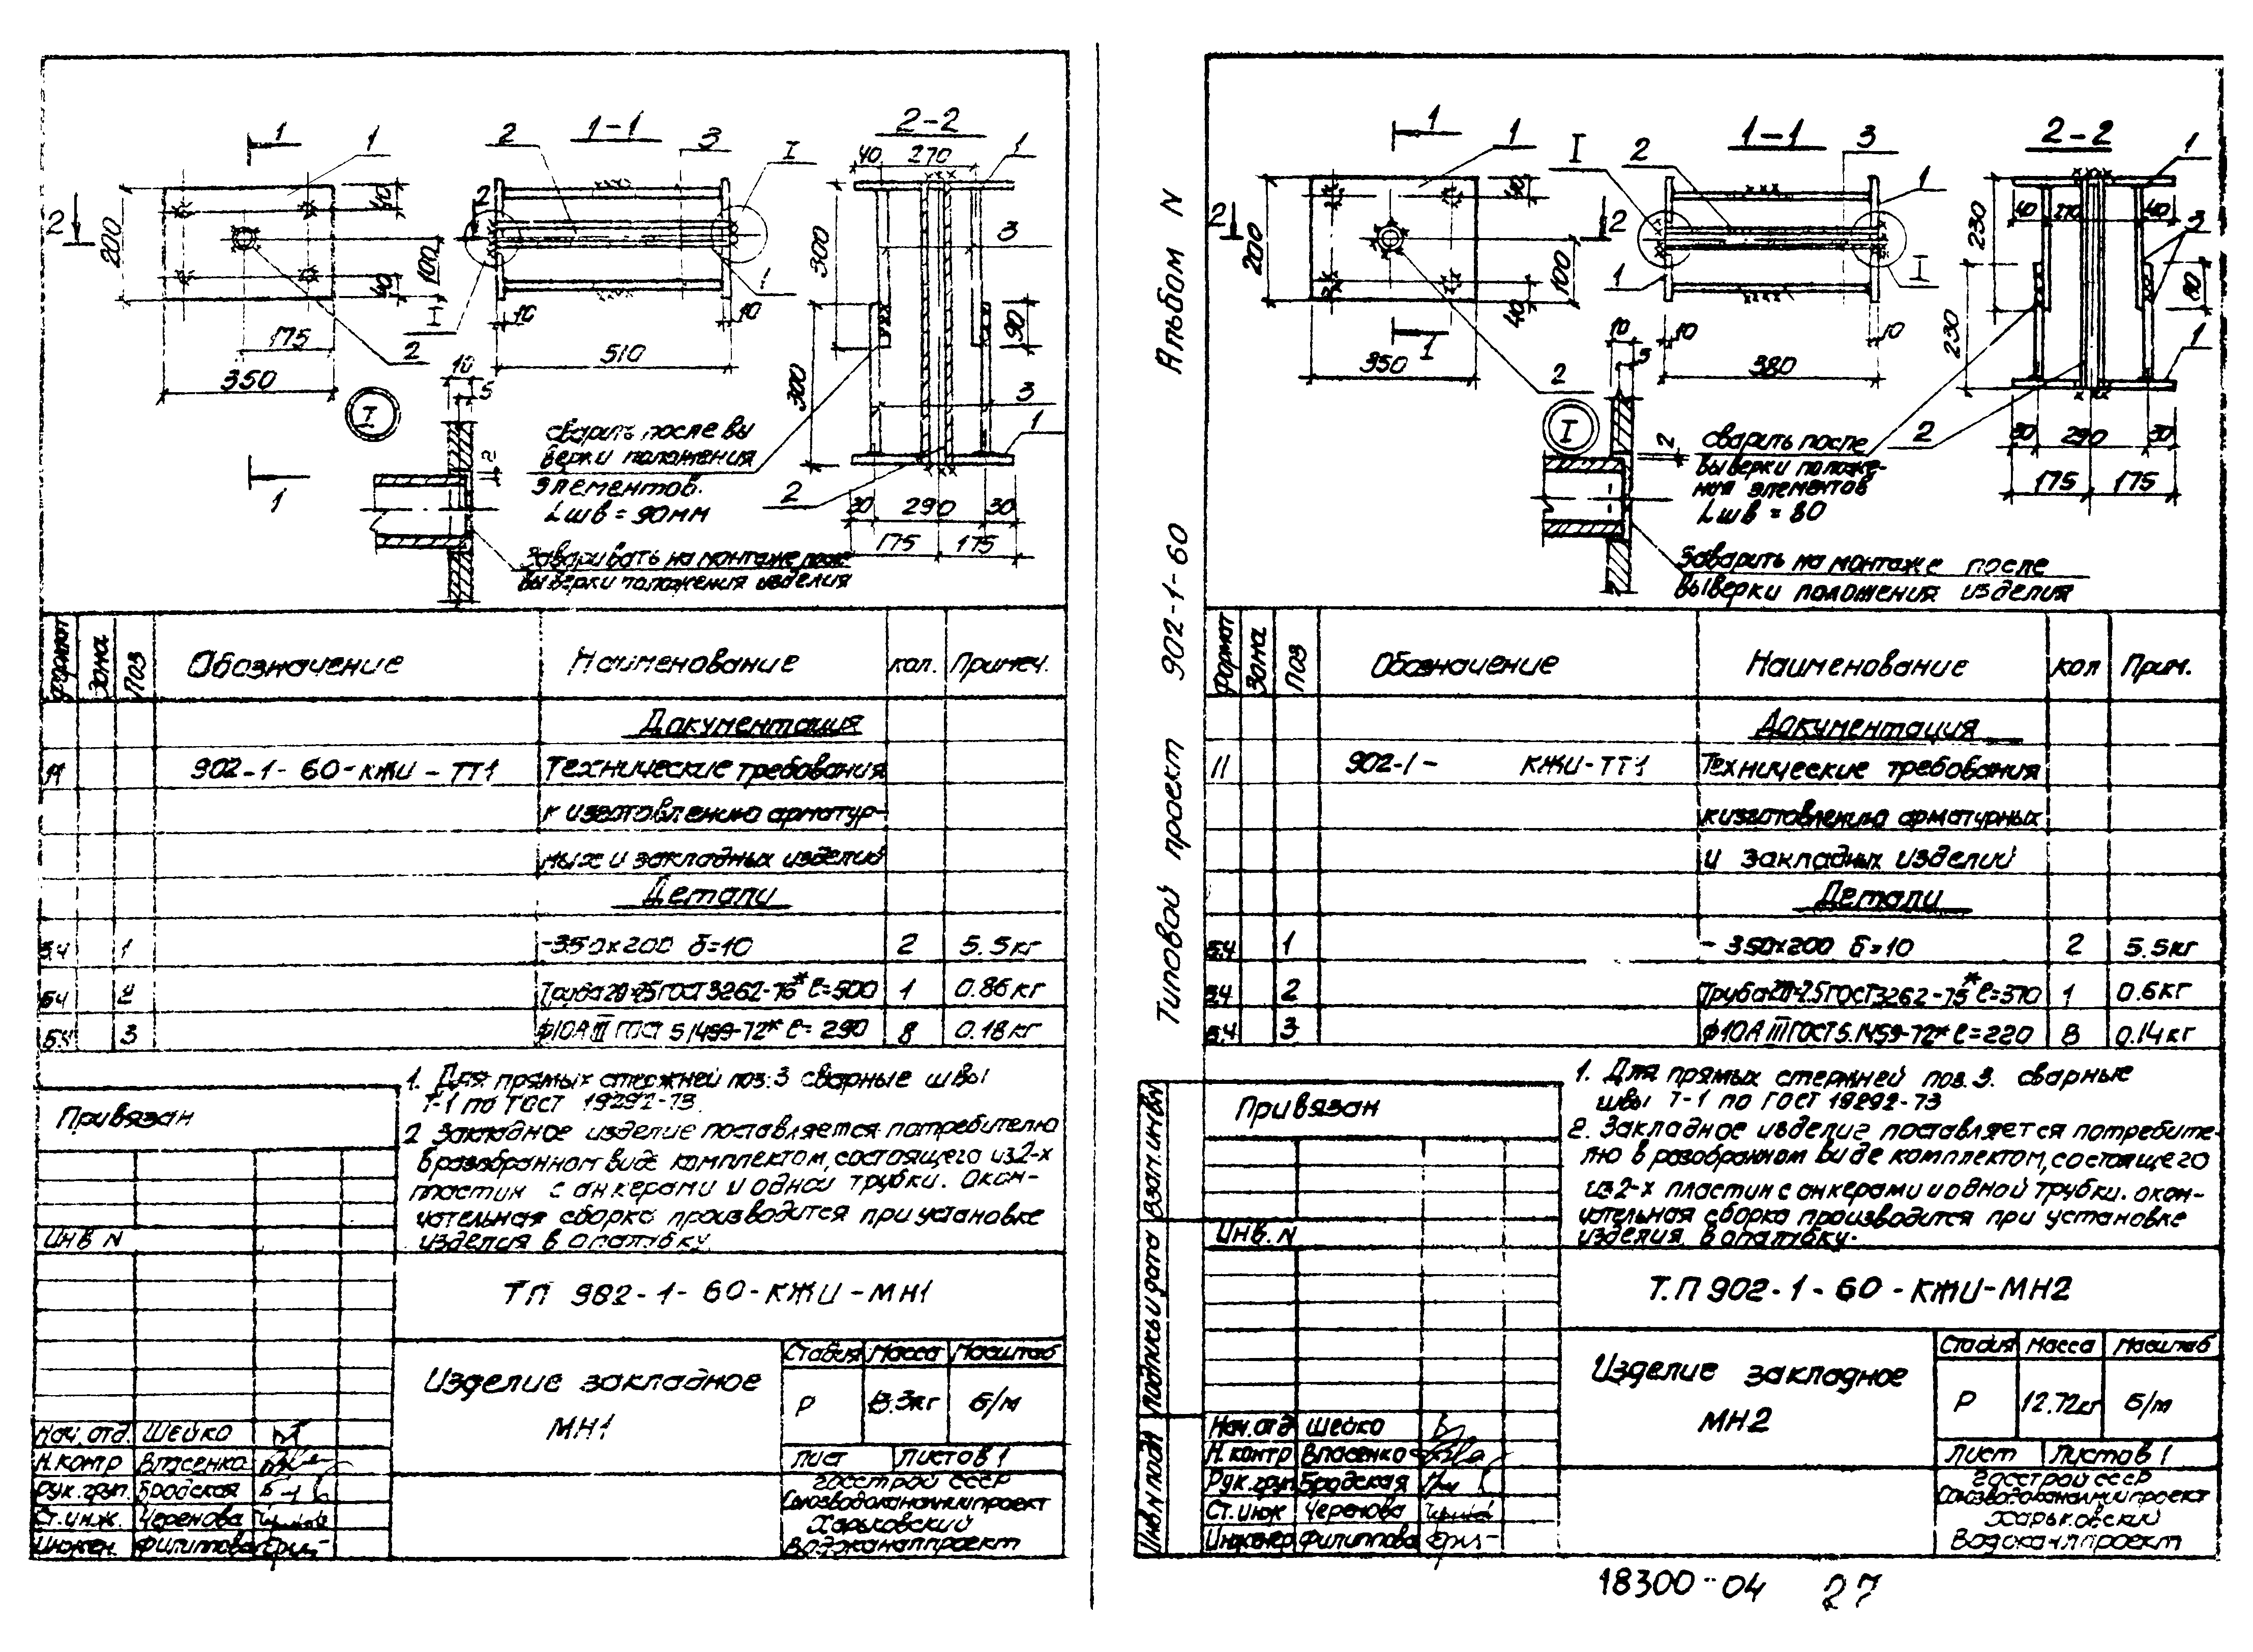 1-1
2-2
1
1
2
3
I
40
270
1
2
200
40
100
40
2
175
350
I
1
2
10
510
10
1
10
5
2
I
300
300
3
90
3
1
2
30
290
30
175
175
сварить после вы
верки положения
элементов.
Lшв = 90мм
Заваривать на монтаже после
выверки положения изделия
Формат
Зона
Поз
Обозначение
Наименование
кол.
Примеч.
Документация
11 902-1-60-КЖИ-ТТ1 Технические требования
к изготовлению арматур-
ных и закладных изделий
Детали
Б4 1 -350х200 δ=10 2 5.5кг
Б4 2 Труба 20 ГОСТ 3262-75* ℓ=500 1 0.86кг
Б4 3 ф10АIII ГОСТ 5.1459-72* ℓ=290 8 0.18кг
1. Для прямых стержней поз.3 сварные швы
Т-1 по ГОСТ 19292-73
2 Закладное изделие поставляется потребителю
в разобранном виде комплектом, состоящего из 2-х
пластин с анкерами и одной трубки. Окон-
чательная сборка производится при установке
изделия в опалубку.
Привязан
ИНВ N
ТП 902-1-60-КЖИ-МН1
Изделие закладное
МН1
Стадия Масса Масштаб
Р 13.3кг б/м
Лист Листов 1
Госстрой СССР
Союзводоканалниипроект
Харьковский
Водоканалпроект
Нач. отд. Шейко
Н.контр Власенко
Рук. груп. Бродская
Ст.инж. Черенова
Инжен. Филиппова
Альбом N
Типовой проект 902-1-60
1-1
2-2
1
1
I
2
3
1
1
2
200
40
100
40
350
1
2
I
2
10
380
10
1
I
10
5
2
230
230
40
270
40
3
80
1
2
30
290
30
175
175
сварить после
выверки положе-
ния элементов
Lшв = 80
Заварить на монтаже после
выверки положения изделия
Формат
Зона
Поз
Обозначение
Наименование
кол
Прим.
Документация
11 902-1- КЖИ-ТТ1 Технические требования
к изготовлению арматурных
и закладных изделий
Детали
Б4 1 - 350х200 δ=10 2 5.5кг
Б4 2 Труба ГОСТ3262-75* ℓ=370 1 0.6кг
Б.4 3 ф10АIII ГОСТ5.1459-72* ℓ=220 8 0.14кг
1. Для прямых стержней поз.3. сварные
швы Т-1 по ГОСТ 19292-73
2. Закладное изделие поставляется потребите-
лю в разобранном виде комплектом, состоящего
из 2-х пластин с анкерами и одной трубки. окон-
чательная сборка производится при установке
изделия в опалубку.
Привязан
Инв. N
Взам.инв.N
Подпись и дата
Инв N подл
Т.П 902-1-60-КЖИ-МН2
Изделие закладное
МН2
Стадия Масса Масштаб
Р 12.72кг б/м
Лист Листов 1
Госстрой СССР
Союзводоканалниипроект
Харьковский
Водоканалпроект
Нач.отд Шейко
Н.контр Власенко
Рук.груп Бродская
Ст.инж Черенова
Инженер Филиппова
18300-04 27